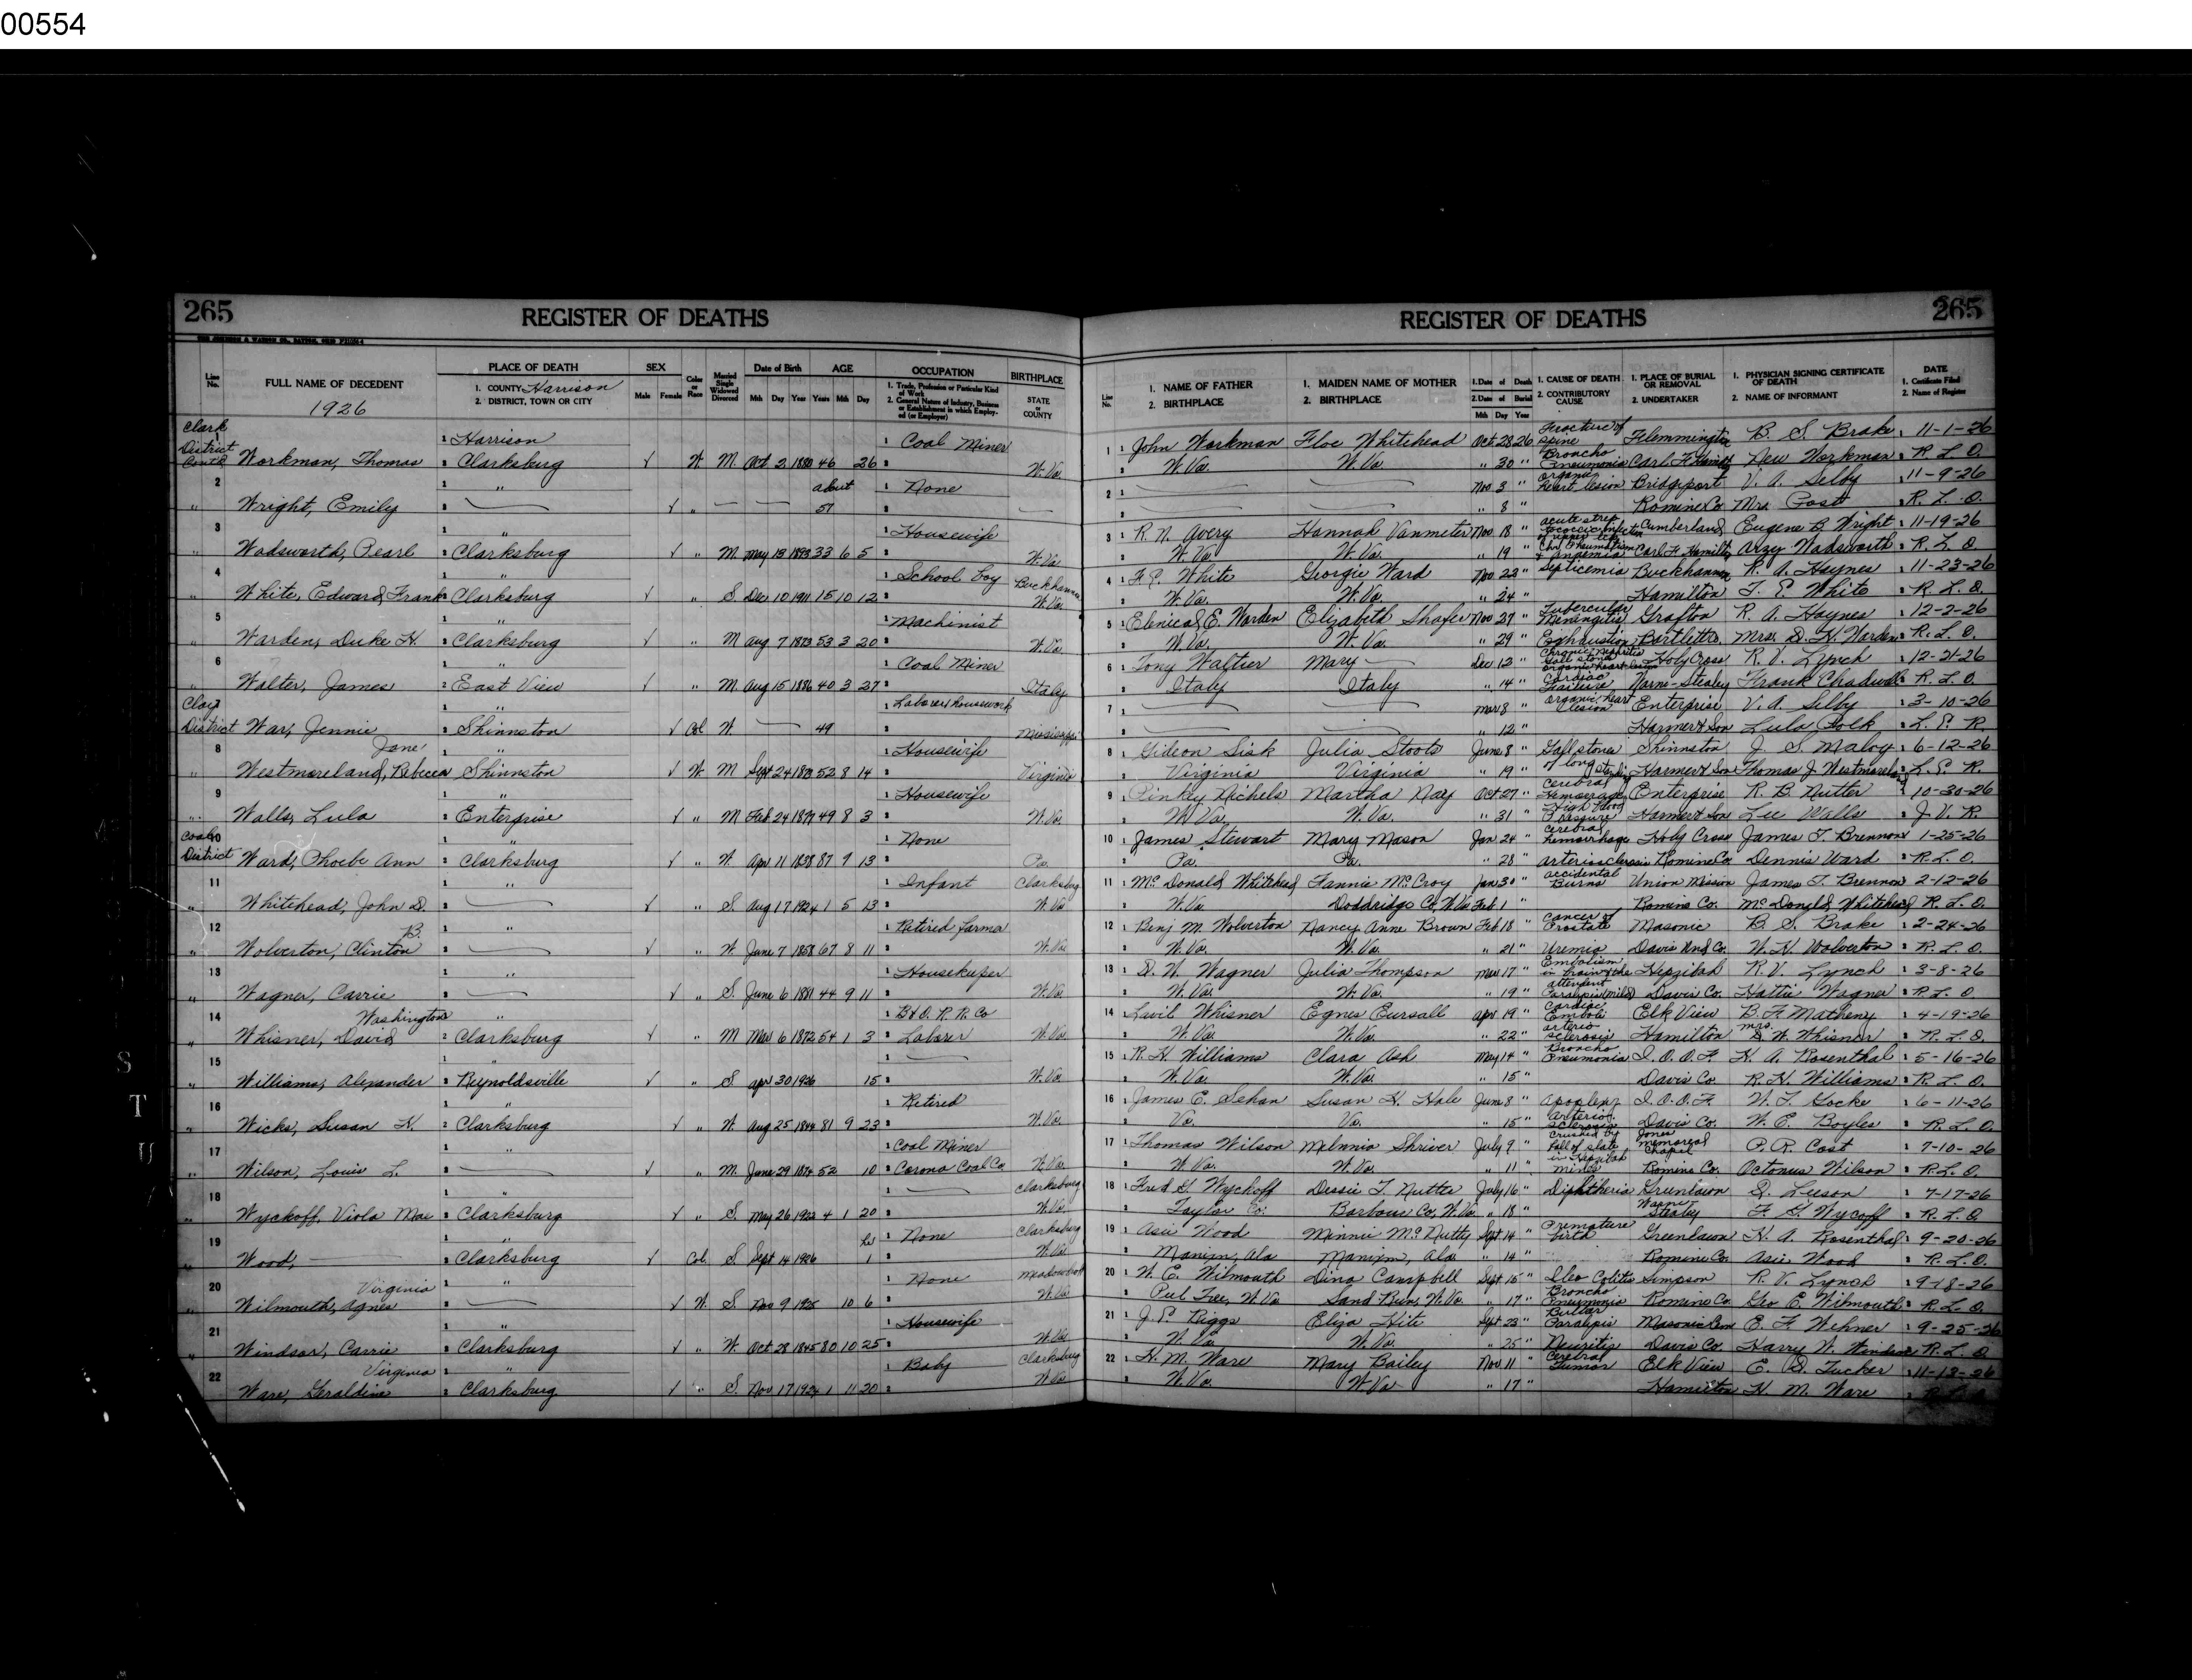 00554
265 REGISTER OF DEATHS
REGISTER OF DEATHS 265
Line No. FULL NAME OF DECEDENT 1926 PLACE OF DEATH 1. COUNTY Harrison 2. DISTRICT, TOWN OR CITY SEX Male Female Color or Race Married Single Widowed Divorced Date of Birth Mth Day Year AGE Years Mth Day OCCUPATION 1. Trade, Profession or Particular Kind of Work 2. General Nature of Industry, Business or Establishment in which Employed (or Employer) BIRTHPLACE STATE or COUNTY
Line No. 1. NAME OF FATHER 2. BIRTHPLACE 1. MAIDEN NAME OF MOTHER 2. BIRTHPLACE 1. Date of Death 2. Date of Burial Mth Day Year 1. CAUSE OF DEATH 2. CONTRIBUTORY CAUSE 1. PLACE OF BURIAL OR REMOVAL 2. UNDERTAKER 1. PHYSICIAN SIGNING CERTIFICATE OF DEATH 2. NAME OF INFORMANT DATE 1. Certificate Filed 2. Name of Register
Clark District Cont'd
1 1 Harrison 1 Coal Miner
Workman, Thomas 2 Clarksburg √ W. M. Oct 2 1880 46 26 2 W.Va.
1 1 John Workman Floe Whitehead Oct 28 26 Fracture of Spine Flemmington B. S. Brake 11-1-26
2 W.Va. W.Va. " 30 " Broncho Pneumonia Carl F. Hamilton Dew Workman R. L. O.
2 1 " about 1 None
" Wright, Emily 2 — √ " — — 57 2 —
2 1 — — Nov 3 " organic heart lesion Bridgeport V. A. Selby 11-9-26
2 — — " 8 " Romine Co Mrs. Post R. L. O.
3 1 " 1 Housewife
" Wadsworth, Pearl 2 Clarksburg √ " M. May 13 1893 33 6 5 2 W.Va.
3 1 R. N. Avery Hannah Vanmeter Nov 18 " acute strep Cumberland Eugene B. Wright 11-19-26
2 W.Va. W.Va. " 19 " Chr. Rheumatism & anaemia Carl F. Hamilton Arzy Wadsworth R. L. O.
4 1 " 1 School boy Buckhannon
" White, Edward Frank 2 Clarksburg √ " S. Dec 10 1911 15 10 12 2 W.Va.
4 1 F. E. White Georgie Ward Nov 22 " Septicemia Buckhannon R. A. Haynes 11-23-26
2 W.Va. W.Va. " 24 " Hamilton F. E. White R. L. O.
5 1 " 1 Machinist
" Warden, Duke H. 2 Clarksburg √ " M Aug 7 1873 53 3 20 2 W.Va.
5 1 E. Warden Elizabeth Shafer Nov 27 " Tubercular Meningitis Grafton R. A. Haynes 12-2-26
2 W.Va. W.Va. " 29 " Exhaustion Bartletts Mrs. D. H. Warden R. L. O.
6 1 " 1 Coal Miner
" Walter, James 2 East View √ " M. Aug 15 1886 40 3 27 2 Italy
6 1 Tony Waltier Mary — Dec 12 " Chronic Nephritis Gall stones organic heart lesion Holy Cross R. V. Lynch 12-21-26
2 Italy Italy " 14 " Cardiac Failure Stealey Frank R. L. O.
Clay District
1 " 1 Laborer housework
War, Jennie 2 Shinnston √ Col W. — 49 2 Mississippi
7 1 — — Mar 8 " organic heart lesion Enterprise V. A. Selby 3-10-26
2 — — " 12 " Harmer & Son Lula Polk L. E. R.
8 Jane 1 " 1 Housewife
" Westmoreland, Rebecca 2 Shinnston √ W. M Sept 24 1873 52 8 14 2 Virginia
8 1 Gideon Sisk Julia Stoots June 8 " Gall stones Shinnston J. S. Maloy 6-12-26
2 Virginia Virginia " 19 " of long standing Harmer & Son Thomas J. Westmoreland L. E. R.
9 1 " 1 Housewife
" Walls, Lula 2 Enterprise √ " M Feb 24 1877 49 8 3 2 W.Va.
9 1 Pinkey Nichols Martha Nay Oct 27 " Cerebral Hemorrage Enterprise R. B. Nutter 10-30-26
2 W.Va. W.Va. " 31 " High Blood Pressure Harmer & Son Lee Walls J. V. R.
Coal District
10 1 " 1 None
Ward, Phoebe Ann 2 Clarksburg √ " W. Apr 11 1838 87 9 13 2 Pa.
10 1 James Stewart Mary Mason Jan 24 " Cerebral hemorrhage Holy Cross James T. Brennon 1-25-26
2 Pa. Pa. " 28 " arteriosclerosis Romine Co. Dennis Ward R. L. O.
11 1 " 1 Infant Clarksburg
" Whitehead, John D. 2 — √ " S. Aug 17 1924 1 5 13 2 W.Va.
11 1 Mc Donald Whitehead Fannie McCroy Jan 30 " accidental Burns Union Mission James T. Brennon 2-12-26
2 W.Va. Doddridge Co, W.Va. Feb 1 " Romine Co. McDonald Whitehead R. L. O.
12 B. 1 " 1 Retired farmer
" Wolverton, Clinton 2 — √ " W. June 7 1858 67 8 11 2 W.Va.
12 1 Benj M. Wolverton Nancy Anne Brown Feb 18 " Cancer of Prostate Masonic B. S. Brake 2-24-26
2 W.Va. W.Va. " 21 " Uremia Davis Und Co. W. H. Wolverton R. L. O.
13 1 " 1 Housekeeper
" Wagner, Carrie 2 — √ " S. June 6 1881 44 9 11 2 W.Va.
13 1 D. W. Wagner Julia Thompson Mar 17 " Embolism in brain Hepzibah R. V. Lynch 3-8-26
2 W.Va. W.Va. " 19 " attendent Paralysis (mild) Davis Co. Hattie Wagner R. L. O.
14 Washington 1 " 1 B & O. R. R. Co
" Whisner, David 2 Clarksburg √ " M Mar 6 1872 54 1 3 2 Laborer W.Va.
14 1 Whisner Egnes Eursall Apr 19 " Cardiac Emboli Elk View B. F. Matheny 4-19-26
2 W.Va. W.Va. " 22 " arterio sclerosis Hamilton Mrs. D. W. Whisner R. L. O.
15 1 " 1 —
" Williams, Alexander 2 Reynoldsville √ " S. Apr 30 1926 15 2 W.Va.
15 1 R. H. Williams Clara Ash May 14 " Broncho Pneumonia I. O. O. F. H. A. Rosenthal 5-16-26
2 W.Va. W.Va. " 15 " Davis Co. R. H. Williams R. L. O.
16 1 " 1 Retired
" Wicks, Susan H. 2 Clarksburg √ " W. Aug 25 1844 81 9 23 2 W.Va.
16 1 James E. Sehan Susan H. Hale June 8 " Apoplexy I. O. O. F. W. T. Gocke 6-11-26
2 Va. Va. " 15 " arterio sclerosis Davis Co. W. E. Boyles R. L. O.
17 1 " 1 Coal Miner
" Wilson, Louis L. 2 — √ " M. June 29 1874 52 10 2 Corona Coal Co. W.Va.
17 1 Thomas Wilson Melnnia Shriver July 9 " Crushed by fall of slate in Hepzibah mines Jones memorial chapel P. R. Cost 7-10-26
2 W.Va. W.Va. " 11 " Romine Co. Octonus Wilson R. L. O.
18 1 " 1 — Clarksburg
" Wyckoff, Viola Mae 2 Clarksburg √ " S. May 26 1922 4 1 20 2 W.Va.
18 1 Fred G. Wyckoff Dessie T. Nutter July 16 " Diphtheria Greenlawn D. Leeson 7-17-26
2 Taylor Co. Barbour Co, W.Va. " 18 " Stealey F. G. Wycoff R. L. O.
19 1 " hr 1 None Clarksburg
" Wood, — 2 Clarksburg √ Col. S. Sept 14 1926 1 2 W.Va.
19 1 Asie Wood Minnie McNutty Sept 14 " Premature birth Greenlawn H. A. Rosenthal 9-20-26
2 Ala Ala " 14 " Romine Co. Asie Wood R. L. O.
20 Virginia 1 " 1 None Meadowbrook
" Wilmouth, Agnes 2 — √ W. S. Nov 9 1925 10 6 2 W.Va.
20 1 W. E. Wilmouth Dina Campbell Sept 15 " Ileo Colitis Simpson R. V. Lynch 9-18-26
2 Peel Tree, W.Va Sand Run, W.Va. " 17 " Broncho Pneumonia Romine Co. Geo E. Wilmouth R. L. O.
21 1 " 1 Housewife
" Windsor, Carrie 2 Clarksburg √ " W. Oct 28 1845 80 10 25 2 W.Va.
21 1 J. P. Riggs Eliza Hite Sept 23 " Bulbar Paralysis Masonic Cem E. F. Wehner 9-25-26
2 W.Va. W.Va. " 25 " Neuritis Davis Co. Harry W. Windsor R. L. O.
22 Virginia 1 " 1 Baby Clarksburg
Ware, Geraldine 2 Clarksburg √ " S. Nov 17 1924 1 11 20 2 W.Va.
22 1 H. M. Ware Mary Bailey Nov 11 " Cerebral Tumor Elk View E. D. Tucker 11-13-26
2 W.Va. W.Va. " 17 " Hamilton H. M. Ware